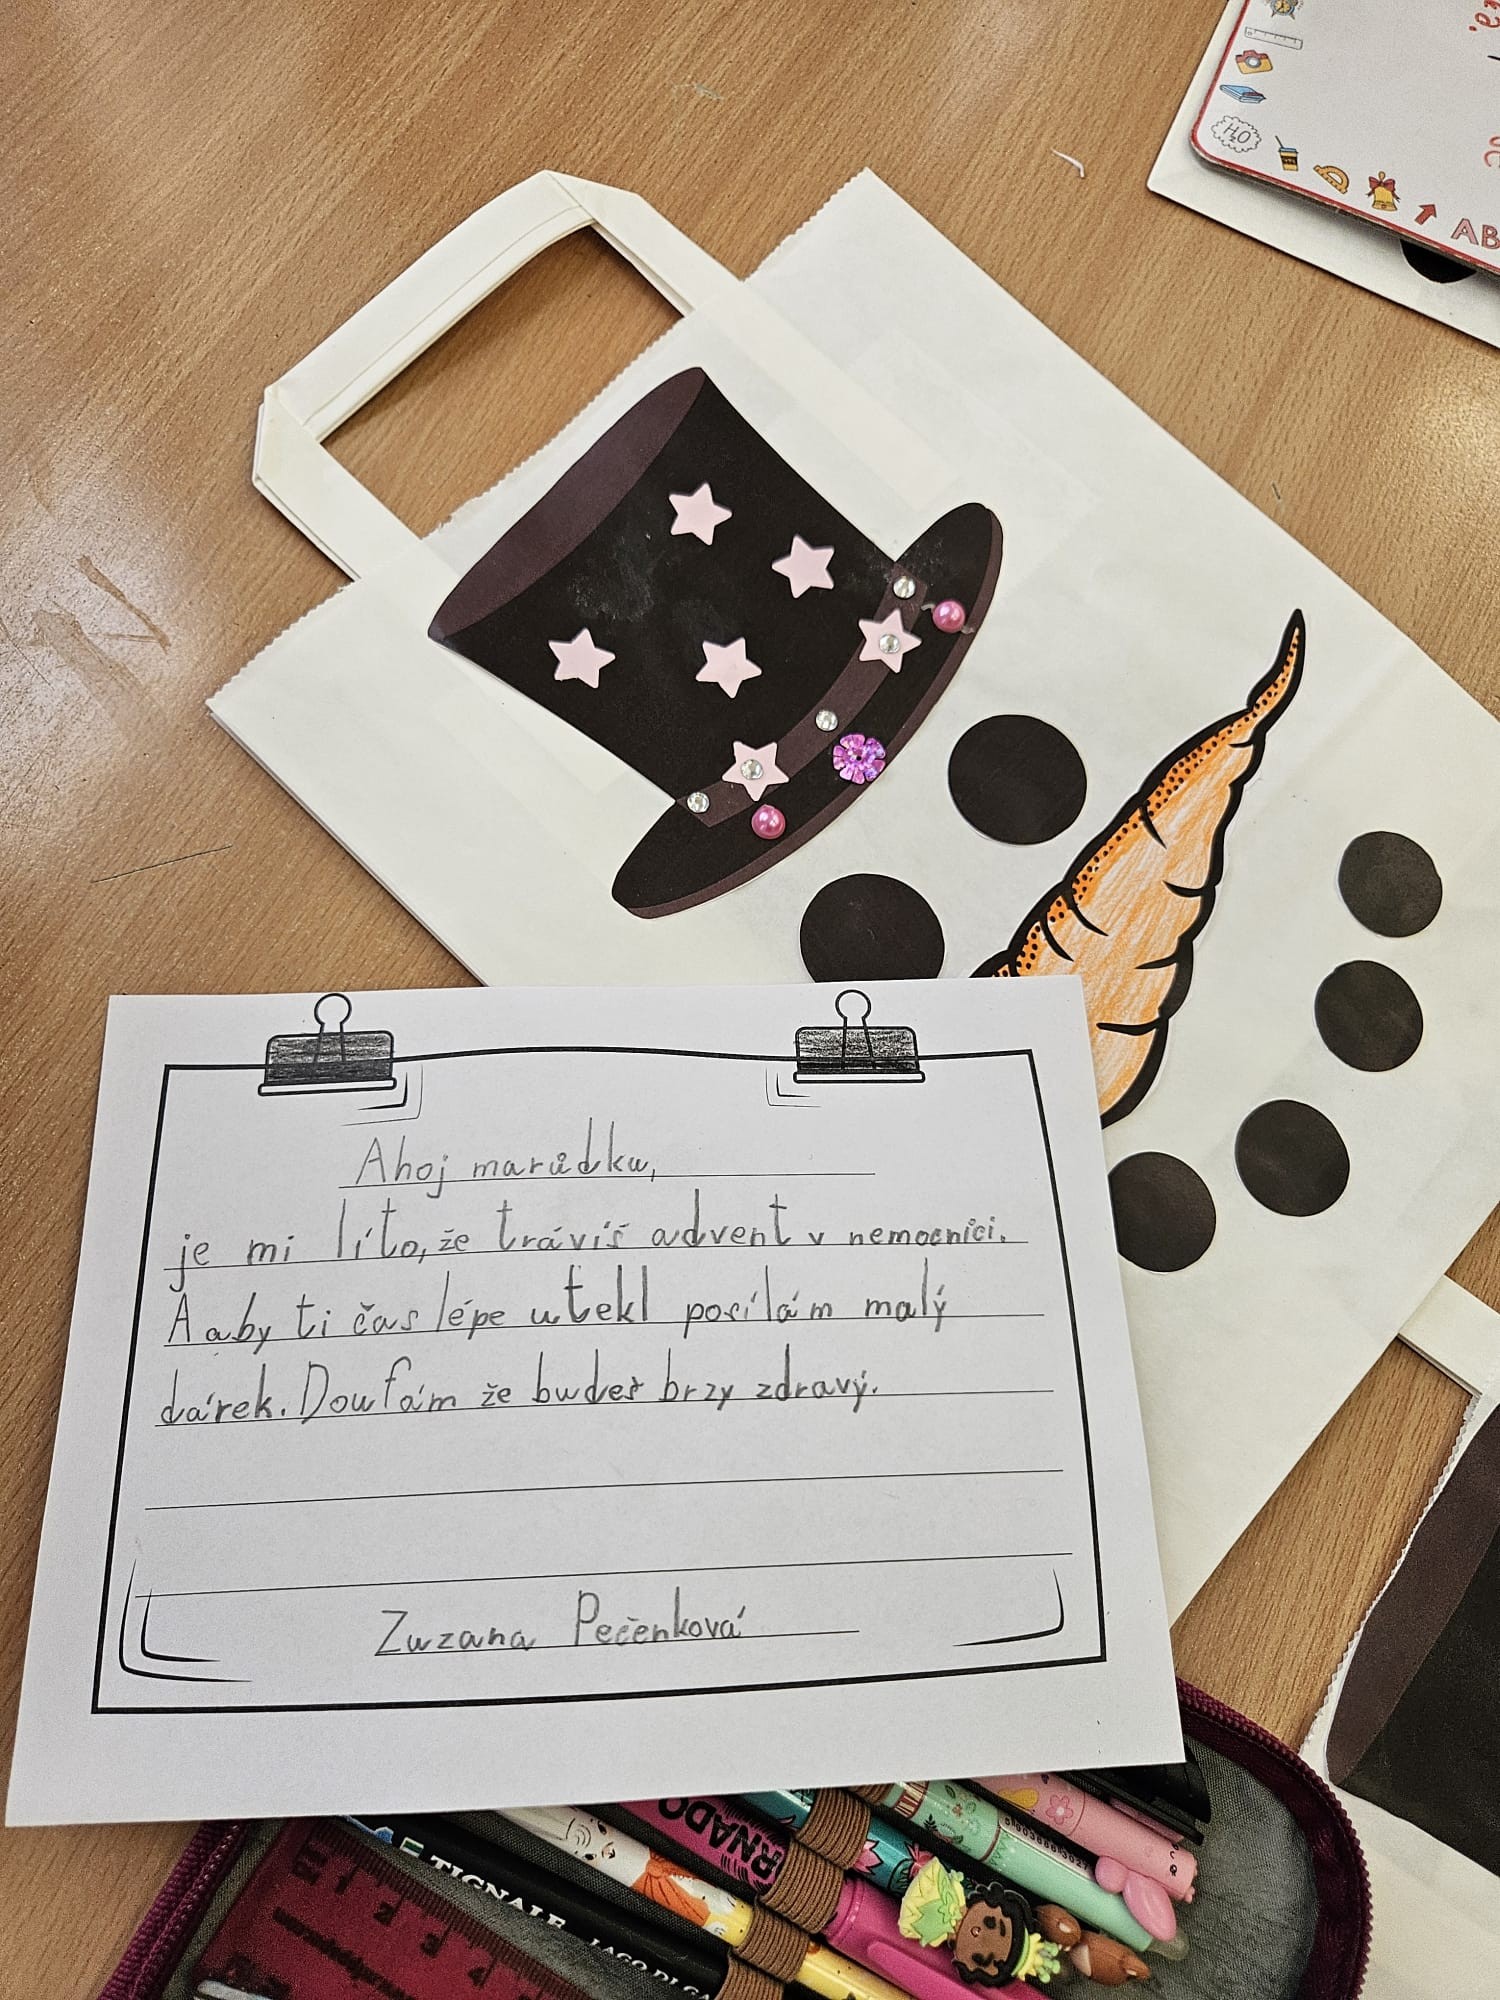 Ahoj marůdku,
je mi líto, že trávíš advent v nemocnici.
A aby ti čas lépe utekl posílám malý
dárek. Doufám že budeš brzy zdravý.
Zuzana Pečenková
H2O
AB
RNADO
TIGNALE
JAGO DI GA